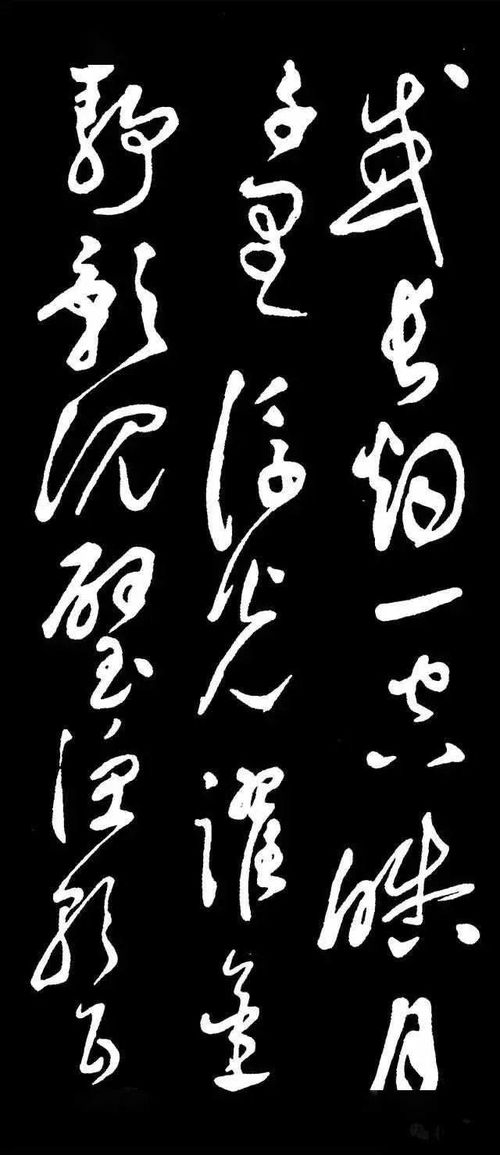 或長烟一空皓月
千里浮光躍金
靜影沉璧漁歌互